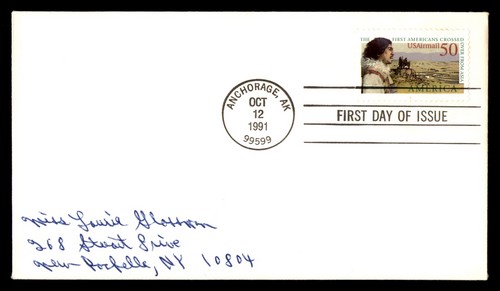 THE FIRST AMERICANS CROSSED
USAirmail 50
AMERICA
ANCHORAGE, AK
OCT
12
1991
99599
FIRST DAY OF ISSUE
Miss Laurie Glassman
268 Stuart Drive
New Rochelle, NY 10804